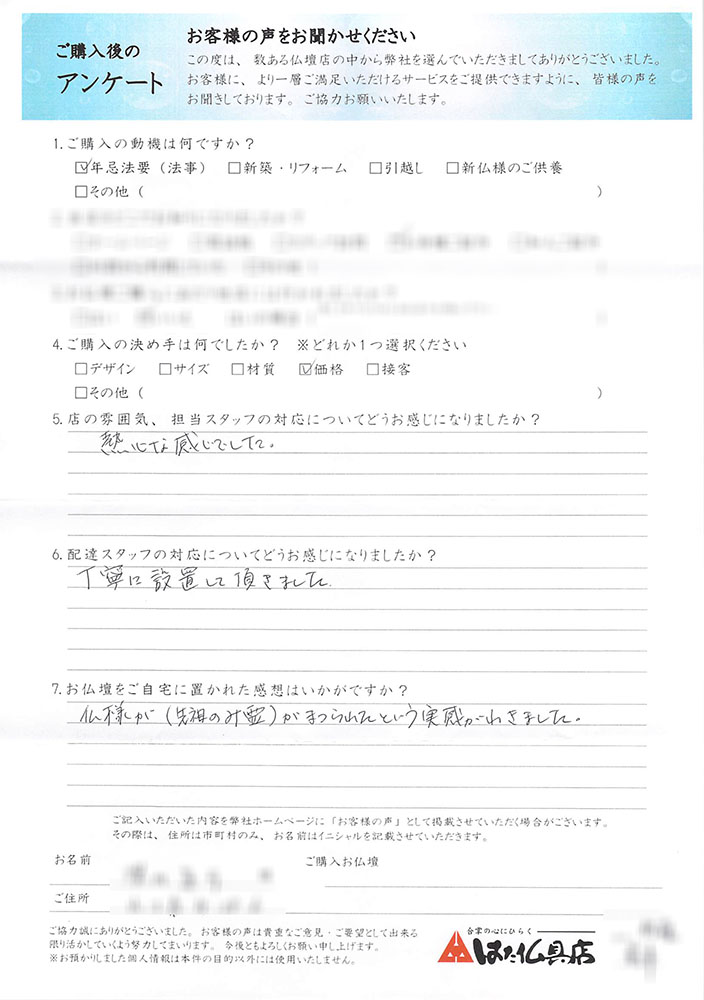 ご購入後の
アンケート
お客様の声をお聞かせください
この度は、数ある仏壇店の中から弊社を選んでいただきましてありがとうございました。
お客様に、より一層ご満足いただけるサービスをご提供できますように、皆様の声を
お聞きしております。ご協力お願いいたします。
1.ご購入の動機は何ですか？
☑年忌法要（法事） □新築・リフォーム □引越し □新仏様のご供養
□その他（ ）
4.ご購入の決め手は何でしたか？ ※どれか1つ選択ください
□デザイン □サイズ □材質 ☑価格 □接客
□その他（ ）
5.店の雰囲気、担当スタッフの対応についてどうお感じになりましたか？
熱心な感じでした。
6.配達スタッフの対応についてどうお感じになりましたか？
丁寧に設置して頂きました
7.お仏壇をご自宅に置かれた感想はいかがですか？
仏様が(先祖のみ霊)がまつられたという実感がわきました。
ご記入いただいた内容を弊社ホームページに「お客様の声」として掲載させていただく場合がございます。
その際は、住所は市町村のみ、お名前はイニシャルを記載させていただきます。
お名前 ご購入お仏壇
ご住所
ご協力誠にありがとうございました。お客様の声は貴重なご意見・ご要望として出来る
限り活かしていくよう努力してまいります。今後ともよろしくお願い申し上げます。
※お預かりしました個人情報は本件の目的以外には使用いたしません。
合掌の心にひらく
はた仏具店